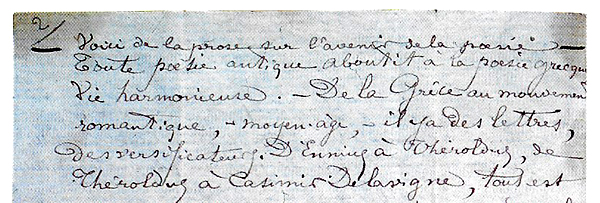 2/
Voici de la prose sur l'avenir de la poésie —
Toute poésie antique aboutit à la poésie grecque,
Vie harmonieuse. — De la Grèce au mouvement
romantique, — moyen-âge, — il y a des lettres,
des versificateurs. D'Ennius à Théroldus, de
Théroldus à Casimir Delavigne, tout est